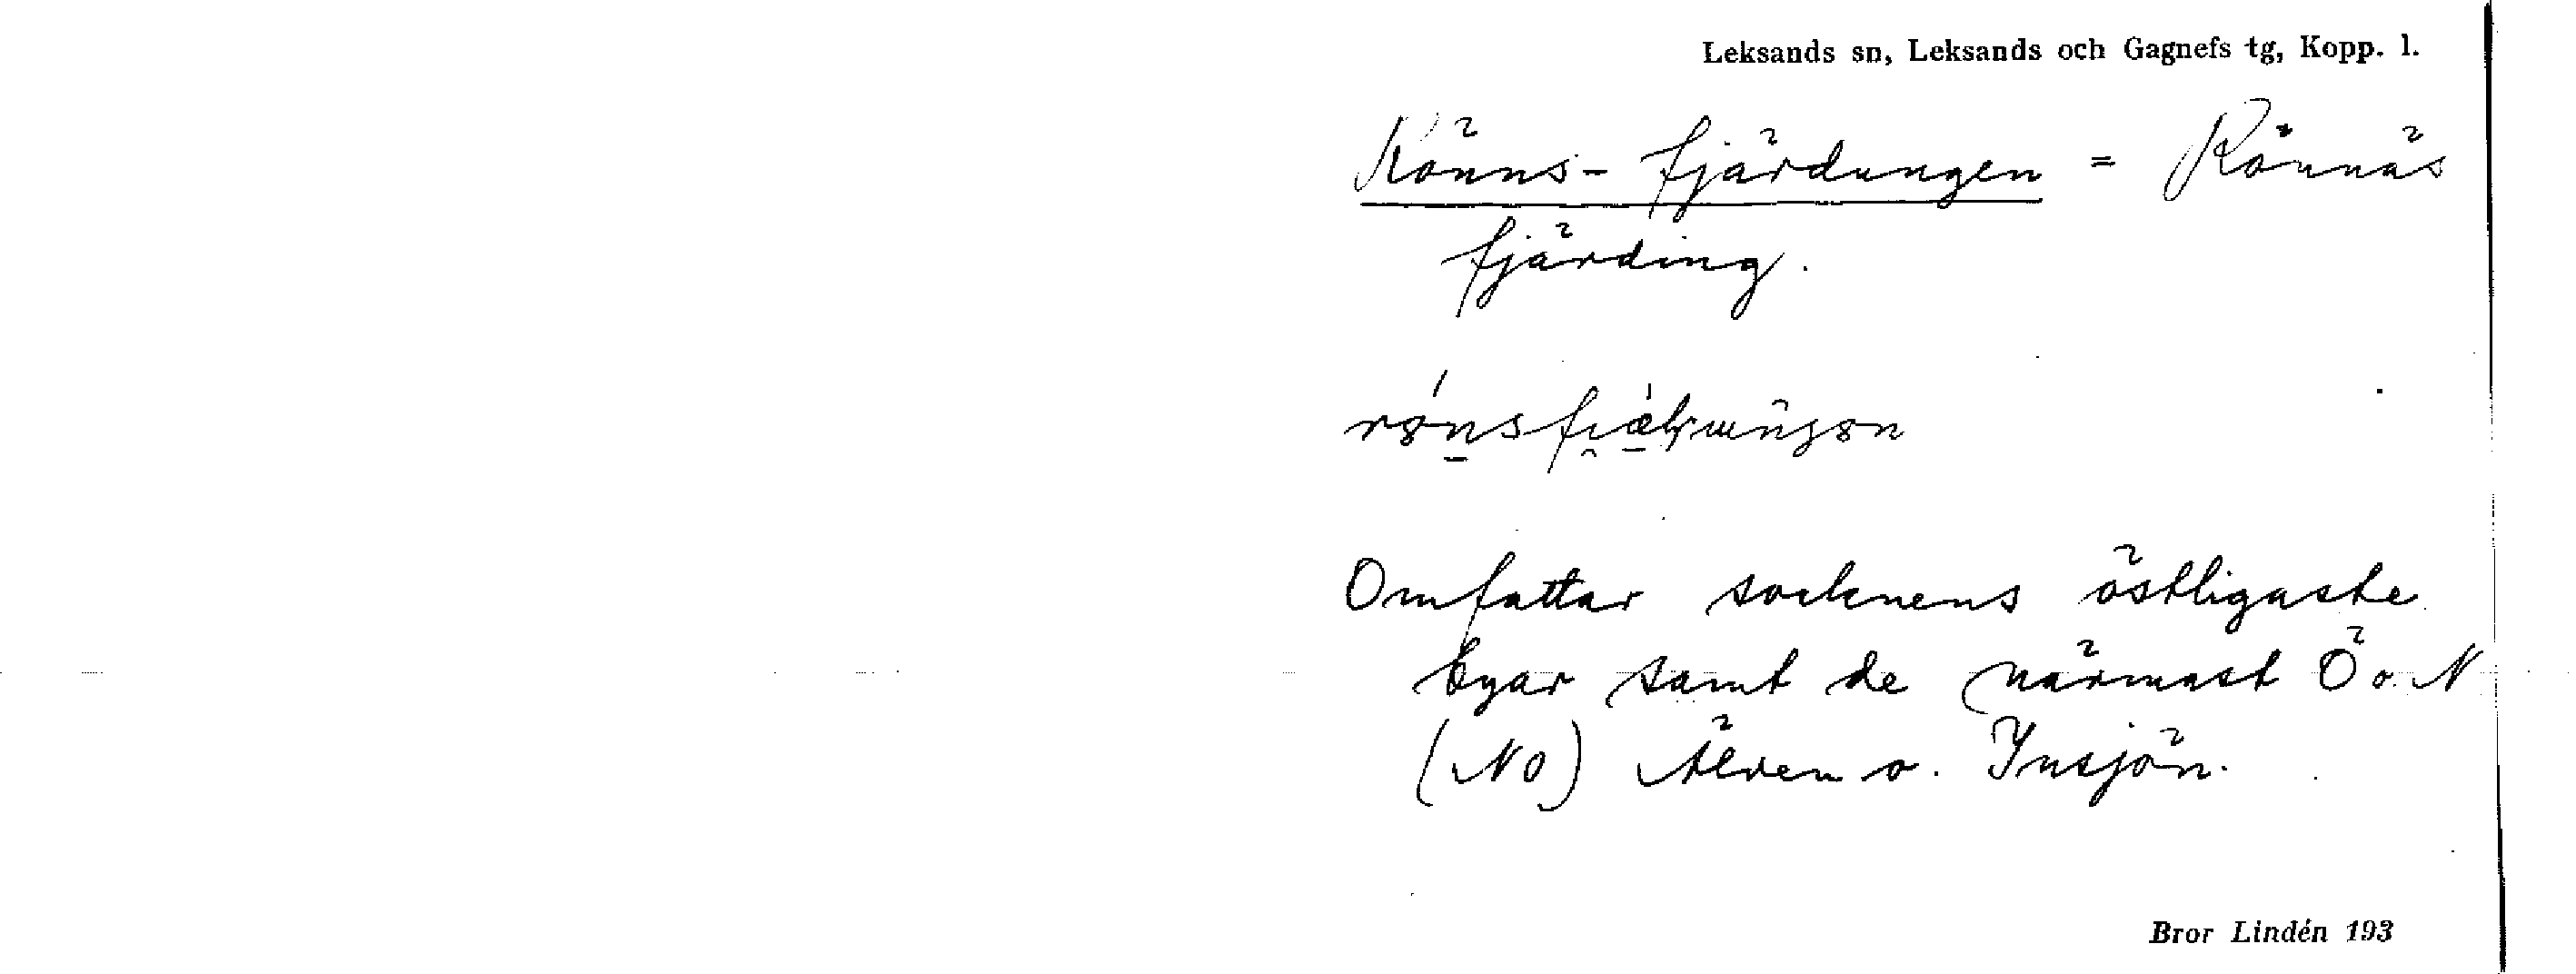 Leksands sn, Leksands och Gagnefs tg, Kopp. l.
Rönns-fjärdungen = Rönnäs
fjärding.
Omfattar socknens östligaste
byar samt de närmast Ö o. N
(NO) Älven o. Insjön.
Bror Lindén 193